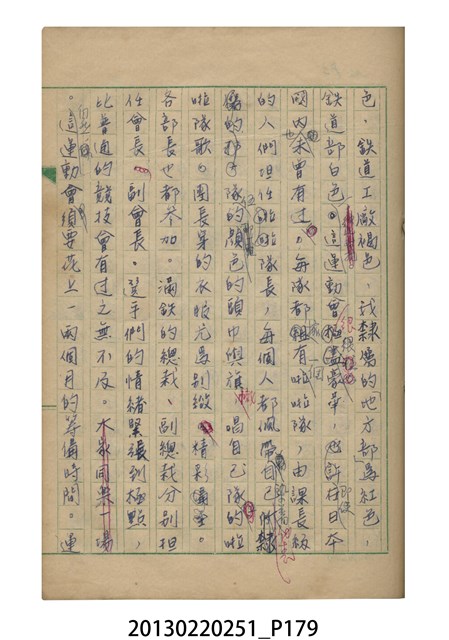 色，鉄道工廠褐色，我隸屬的地方部為紅色，
鉄道部白色。這運動會極盡豪華，也許在日本
國內也未曾有過，每隊都組有啦啦隊，由課長級
的人們担任啦啦隊長，每個人都佩帶自己所隸
屬的部隊的顏色的頭巾與旗幟，唱自己隊的啦
啦隊歌，團長穿的衣服尤為別緻，精彩。
各部長也都參加。滿鉄的總裁、副總裁分別担
任會長、副會長。選手們的情緒緊張到極點，
比普通的競技會有過之無不及。大家同樂一場
。這運動會須要花上一兩個月的籌備時間。運
20130220251_P179